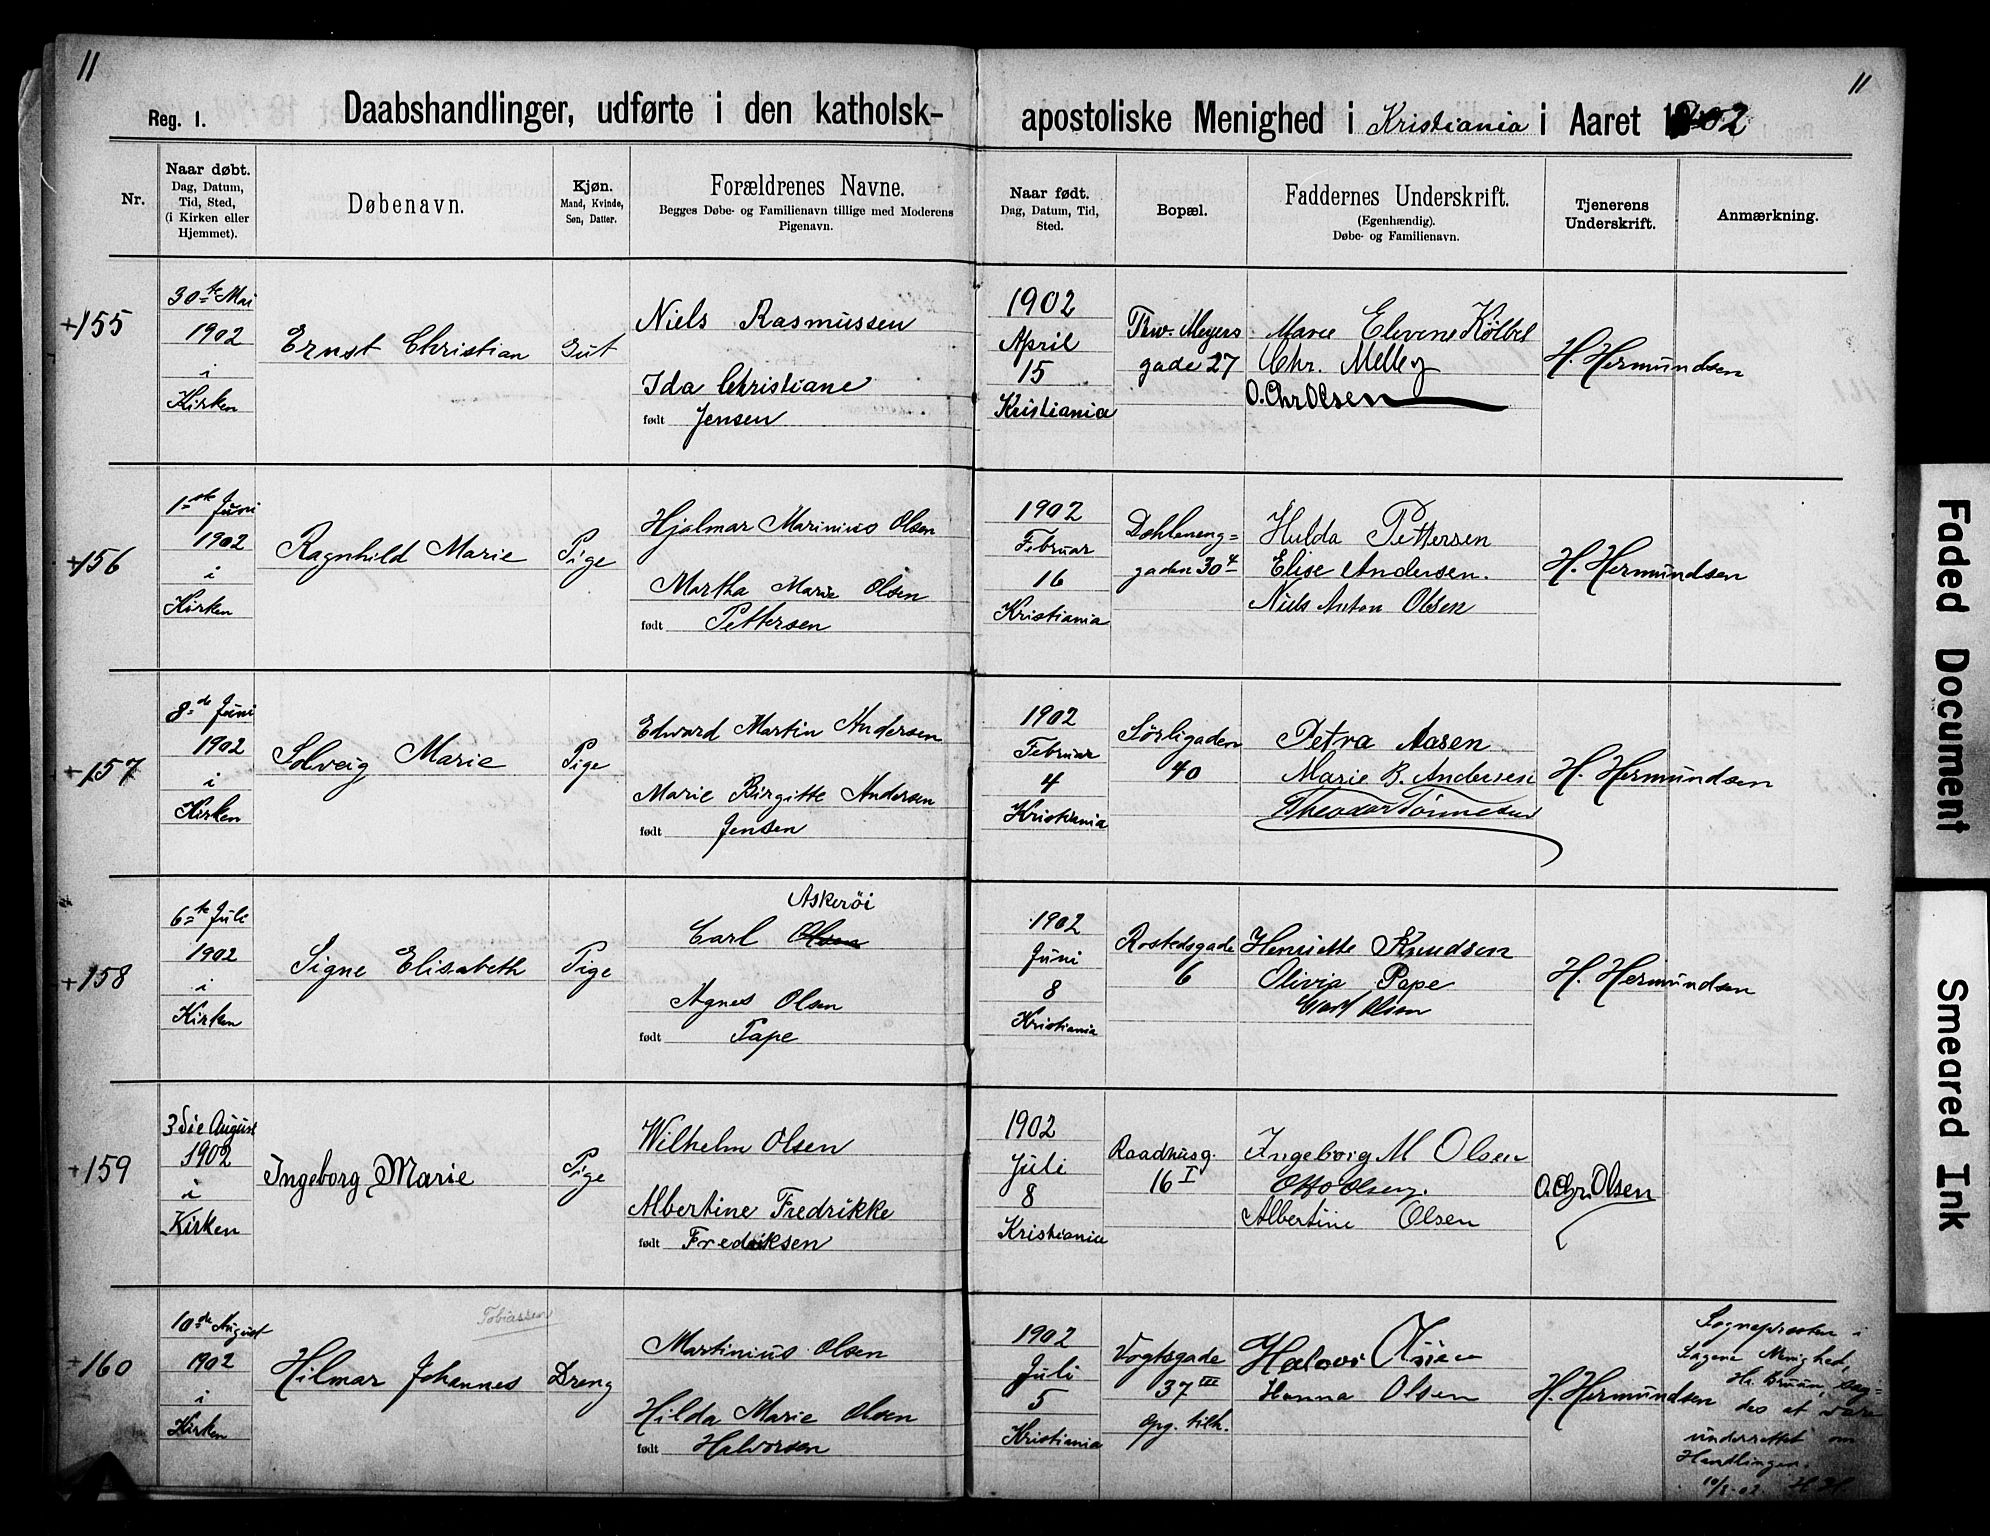 11
11
Reg. 1.
Daabshandlinger, udførte i den katholsk-
apostoliske Menighed i Kristiania i Aaret 1902
Nr.
Naar døbt.
Dag, Datum,
Tid, Sted,
(i Kirken eller
Hjemmet).
Døbenavn.
Kjøn.
Mand, Kvinde,
Søn, Datter.
Forældrenes Navne.
Begges Døbe- og Familienavn tillige med Moderens
Pigenavn.
Naar født.
Dag, Datum, Tid,
Sted.
Bopæl.
Faddernes Underskrift.
(Egenhændig).
Døbe- og Familienavn.
Tjenerens
Underskrift.
Anmærkning.
+155
30te Mai
1902
i
Kirken
Ernst Christian
Gut
Niels Rasmussen
Ida Christiane
født Jensen
1902
April
15
Kristiania
Thv. Meyers
gade 27
Marie Elevine Kølbel
Chr. Melby
O. Chr Olsen
H. Hermundsen
+156
1ste Juni
1902
i
Kirken
Ragnhild Marie
Pige
Hjalmar Marinius Olsen
Martha Marie Olsen
født Pettersen
1902
Februar
16
Kristiania
Dahleneng=
gaden 30 4
Hulda Pettersen
Elise Andersen.
Niels Anton Olsen
H. Hermundsen
+157
8de Juni
1902
i
Kirken
Solveig Marie
Pige
Edward Martin Andersen
Marie Birgitte Andersen
født Jensen
1902
Februar
4
Kristiania
Sørligaden
40
Petra Aasen
Marie B. Andersen
Theodor Tønnesen
H. Hermundsen
+158
6te Juli
1902
i
Kirken
Signe Elisabeth
Pige
Askerøi
Carl Olsen
Agnes Olsen
født Pape
1902
Juni
8
Kristiania
Rostedsgade
6
Henriette Knudsen
Olivia Pape
Carl Olsen
H. Hermundsen
+159
3die August
1902
i
Kirken
Ingeborg Marie
Pige
Wilhelm Olsen
Albertine Fredrikke
født Fredriksen
1902
Juli
8
Kristiania
Raadhusg.
16 I
Ingeborg M Olsen
Otto Olsen.
Albertine Olsen
O. Chr. Olsen
+160
10de August
1902
i
Kirken
Tobiassen
Hilmar Johannes
Dreng
Martinius Olsen
Hilda Marie Olsen
født Halvorsen
1902
Juli
5
Kristiania
Vogtsgade
37 III
opg. tilh.
Halvor Olsen
Hanna Olsen
H. Hermundsen
Sognepræsten i
Sagene Menighed,
Hr. Bruun, sag=
des at være
underrettet om
Handlingen.
10/8-02. H. H.
Faded Document
Smeared Ink